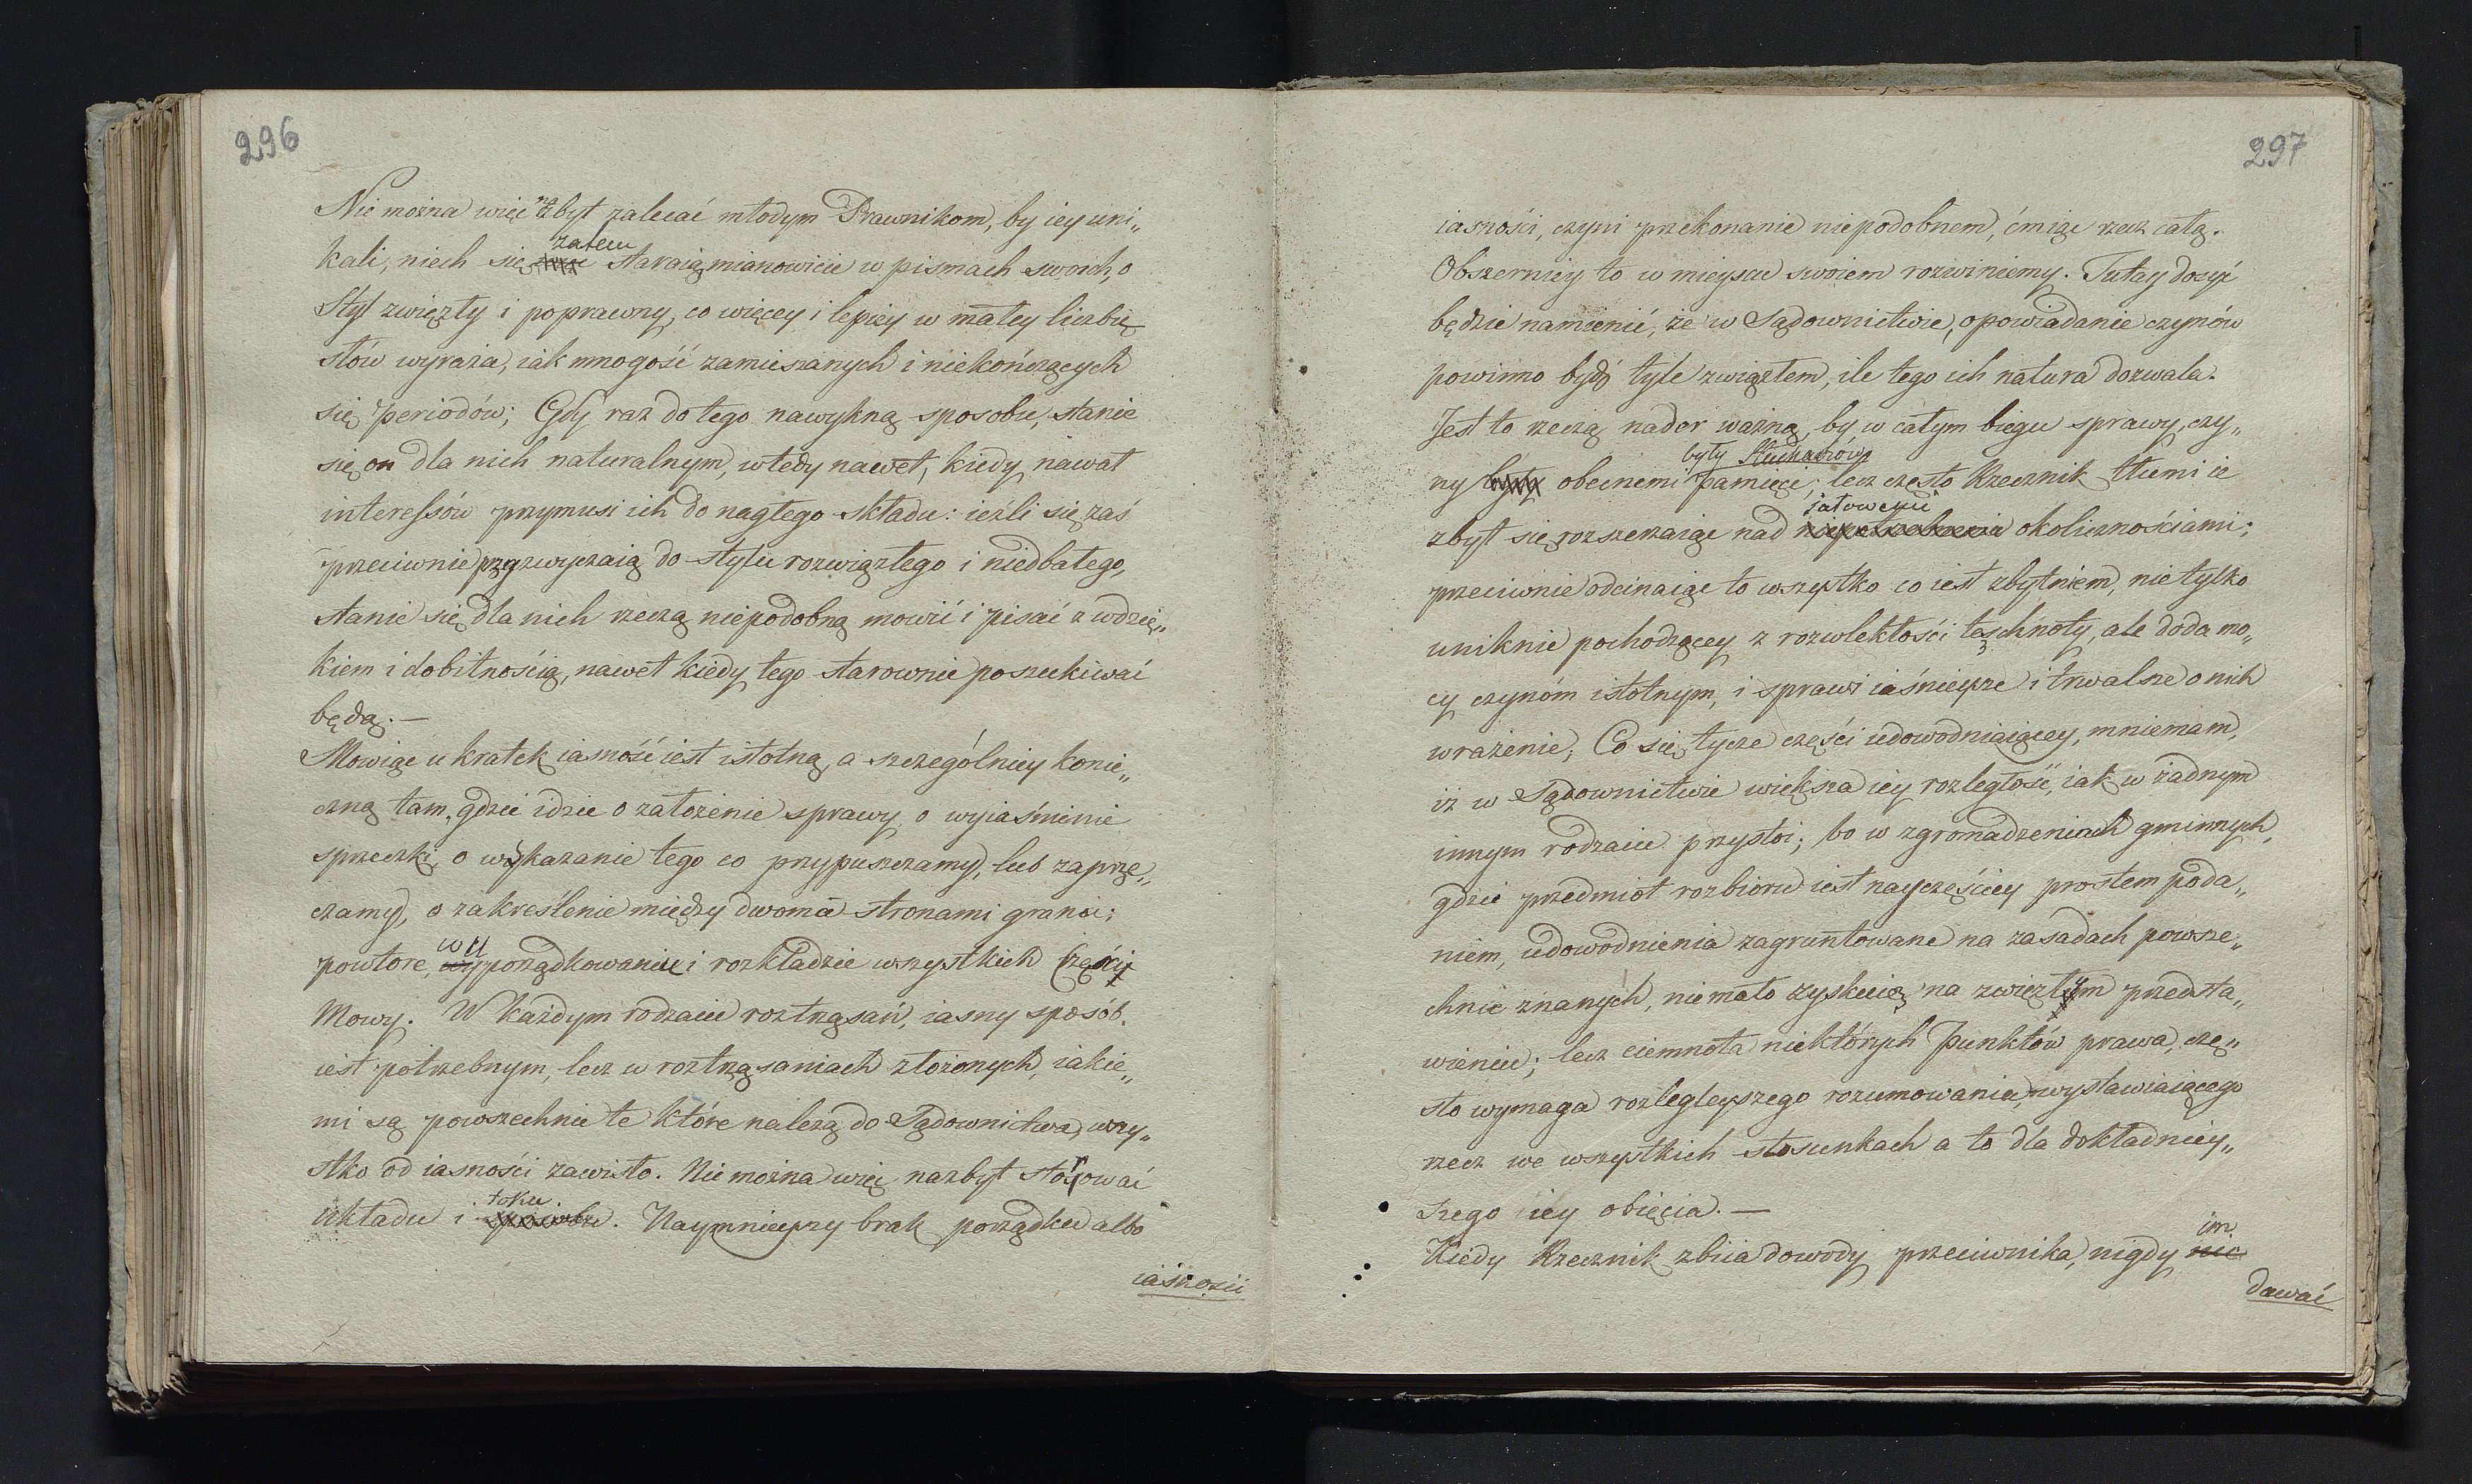 296
Nie można więc nazbyt zalecać młodym Prawnikom, by iey uni„
kali, niech się zatem staraią mianowicie w pismach swoich, o
Styl zwięzły i poprawny, co więcey i lepiey w małey liczbie
słów wyraża, iak mnogość zamieszanych i niekończących
się periodów; Gdy raz do tego nawykną sposobu, stanie
się on dla nich naturalnym, wtedy nawet, kiedy nawał
interessów przymusi ich do nagłego składu: ieżli się zaś
przeciwnie przyzwyczaią do stylu rozwiązłego i niedbałego,
stanie się dla nich rzeczą niepodobną mowić i pisać z wdzię„
kiem i dobitnością, nawet kiedy tego starownie poszukiwać
będą. —
Mowiąc u kratek iasność iest istotną, a szczególniey konie„
czną tam, gdzie idzie o założenie sprawy, o wyiaśnienie
sprzeczki, o wskazanie tego co przypuszczamy, lub zaprze„
czamy, o zakreślenie między dwoma stronami granic;
powtore, w uporządkowaniu i rozkładzie wszystkich części
Mowy. W każdym rodzaiu roztrząsań, iasny sposób
iest potrzebnym, lecz w roztrząsaniach złożonych, iakie„
mi są powszechnie te które należą do Sądownictwa, wszy„
stko od iasności zawisło. Nie można więc nazbyt storować
układu i toku. Naymnieyszy brak porządku albo
iasności
297
iasności, czyni przekonanie niepodobnem, ćmiąc rzecz całą.
Obszerniey to w mieyscu swoiem rozwiniemy. Tutay dosyć
będzie namienić, że w Sądownictwie, opowiadanie czynów
powinno bydź tyle zwięzłem, ile tego ich natura dozwala.
Jest to rzeczą nader ważną, by w całym biegu sprawy, czy„
ny obecnemi były Słuchaczów pamięci; lecz często Rzecznik tłumi ie
zbyt się rozszerzaiąc nad jałowemi okolicznościami;
przeciwnie odcinaiąc to wszystko co iest zbytniem, nie tylko
uniknie pochodzącey z rozwlekłości tęschnoty, ale doda mo„
cy czynóm istotnym, i sprawi iaśnieysze i trwalsze o nich
wrażenie; Co się tycze części udowodniaiącey, mniemam,
iż w Sądownictwie większa iey rozległość, iak w żadnym
innym rodzaiu przystoi; bo w zgromadzeniach gminnych,
gdzie przedmiot rozbioru iest nayczęściey prostem poda„
niem, udowodnienia zagruntowane na zasadach powsze„
chnie znanych, niemało zyskuią na zwięzłem przedsta„
wieniu; lecz ciemnota niektórych Punktów prawa, czę„
sto wymaga rozlegleyszego rozumowania, wystawiaiącego
rzecz we wszystkich stosunkach a to dla dokładniey„
szego iey obięcia. —
Kiedy Rzecznik zbiia dowody przeciwnika, nigdy im
dawać